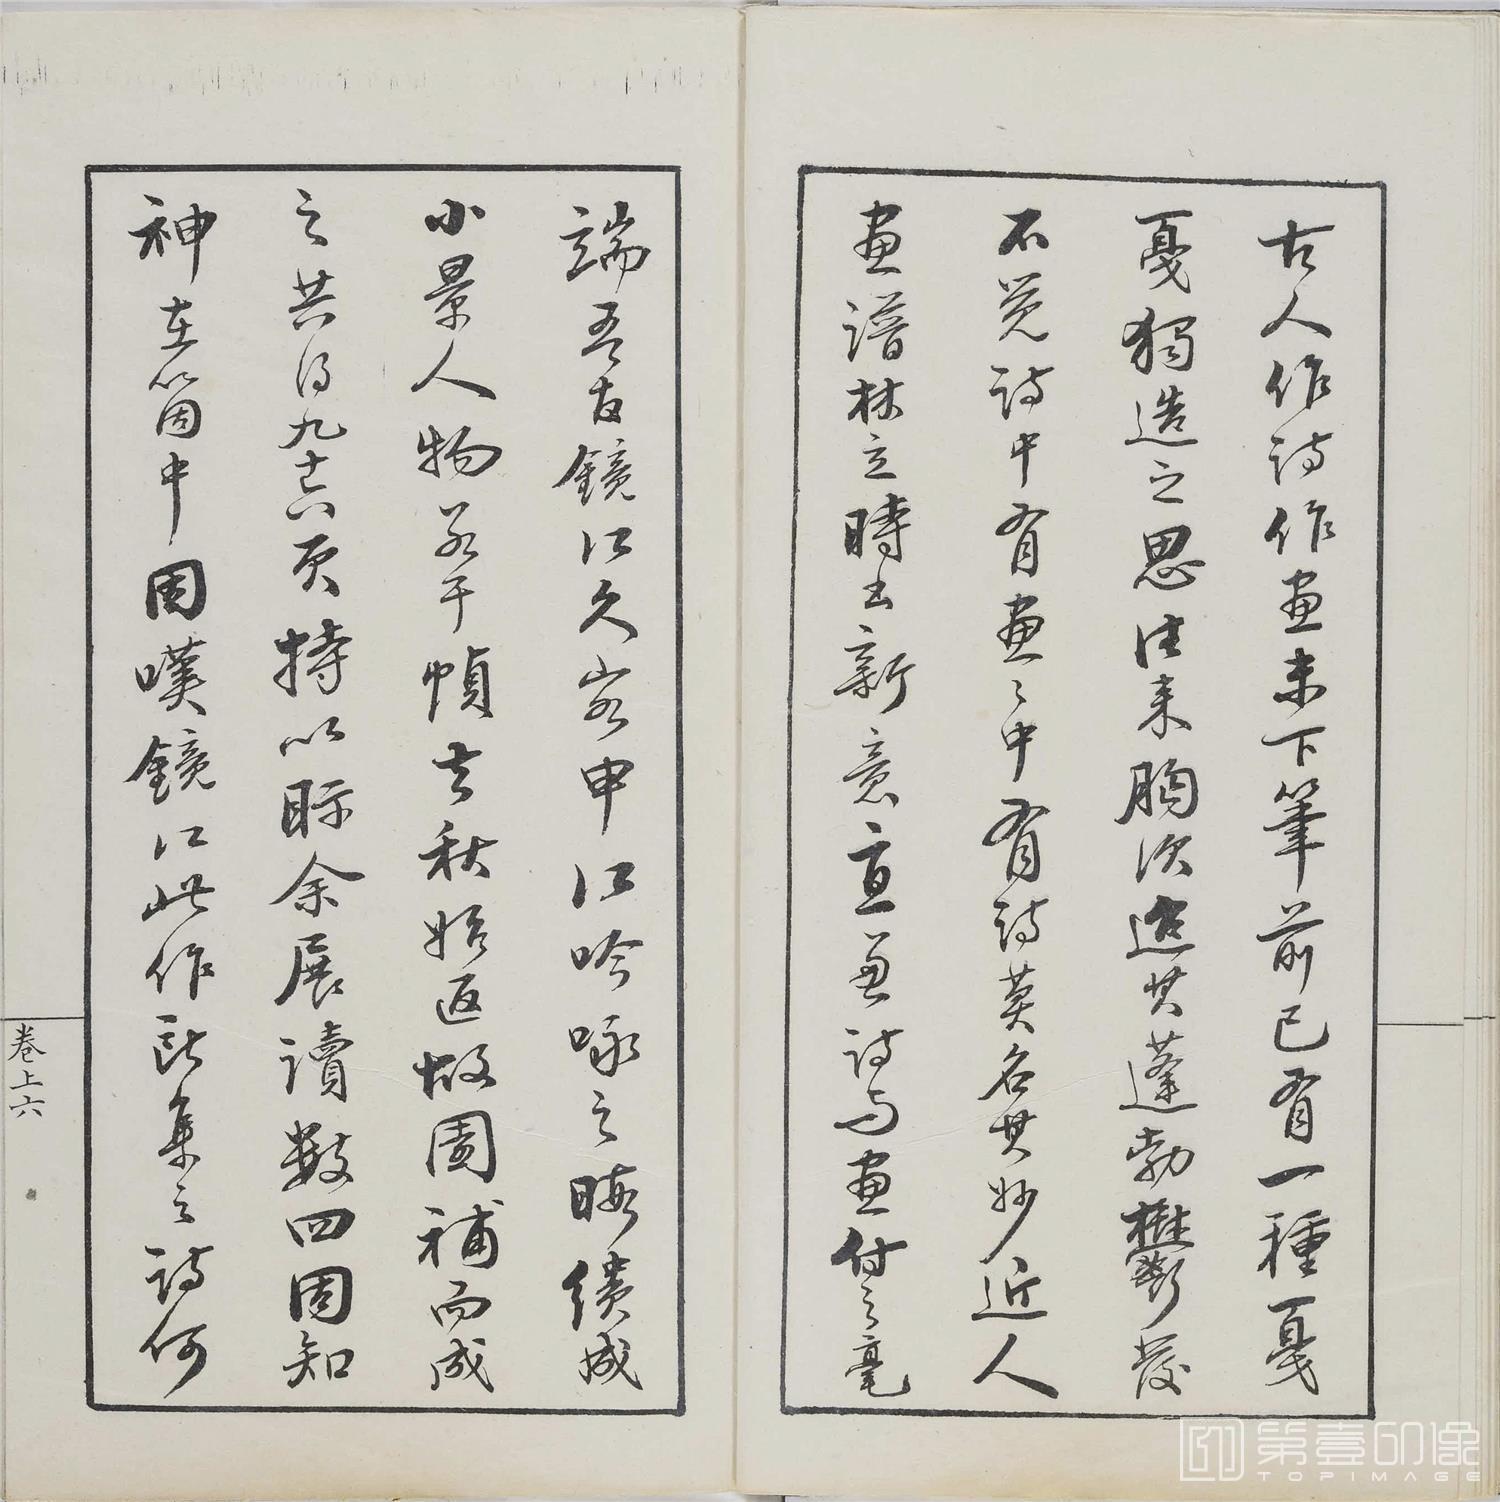 古人作詩作畫未下筆前已有一種戛
戛獨造之思往來胸次迨其蓬勃鬱發
不覺詩中有畫畫中有詩莫名其妙近人
畫譜林立時出新意亘兼詩與畫付之毫
端吾友鏡江久客申江吟咏之暇繢成
小景人物若干幀去秋始返故園補而成
之共得九十六頁持以眎余展讀數四固知
神在箇中因嘆鏡江此作詩集之詩何
卷上六
第壹印像
TOPIMAGE